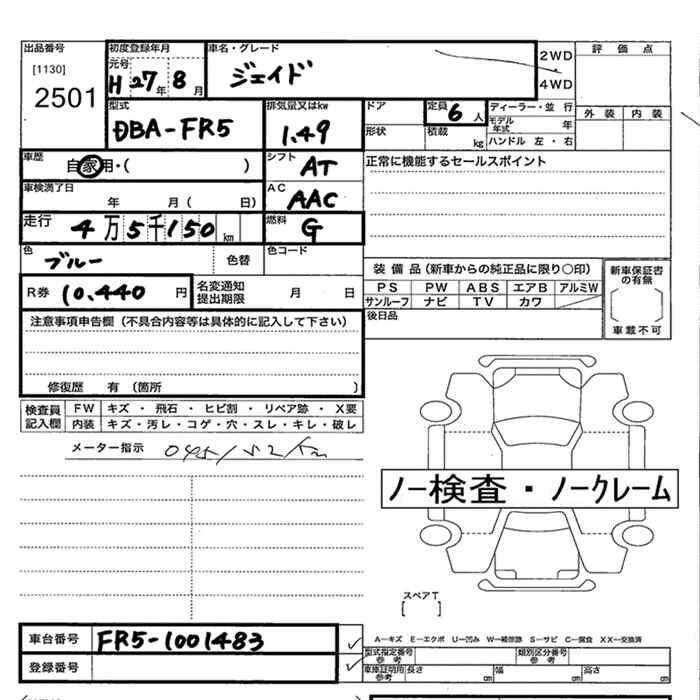 出品番号 [1130] 2501
初度登録年月 元号 H 27年 8月
車名・グレード ジェイド
2WD
4WD
評価点
外装 内装
型式 DBA-FR5
排気量又はkw 1.49
ドア
形状
定員 6人
積載 kg
ディーラー・並行
モデル年式 年
ハンドル 左・右
車歴 自家用・( )
シフト AT
正常に機能するセールスポイント
車検満了日 年 月( 日)
AC AAC
走行 4万5千150km
燃料 G
色 ブルー 色替
色コード
装備品(新車からの純正品に限り○印)
PS PW ABS エアB アルミW
サンルーフ ナビ TV カワ
後日品
新車保証書の有無
車載不可
R券 10.440円
名変通知提出期限 月 日
注意事項申告欄(不具合内容等は具体的に記入して下さい)
修復歴 有(箇所 )
検査員記入欄
FW キズ・飛石・ヒビ割・リペア跡・X要
内装 キズ・汚レ・コゲ・穴・スレ・キレ・破レ
メーター指示
ノー検査・ノークレーム
スペアT
[ ]
車台番号 FR5-1001483
登録番号
A―キズ E―エクボ U―凹み W―補修跡 S―サビ C―腐食 XX―交換済
型式指定番号 参考
類別区分番号 参考
車庫証明用 参考 長さ cm 幅 cm 高さ cm